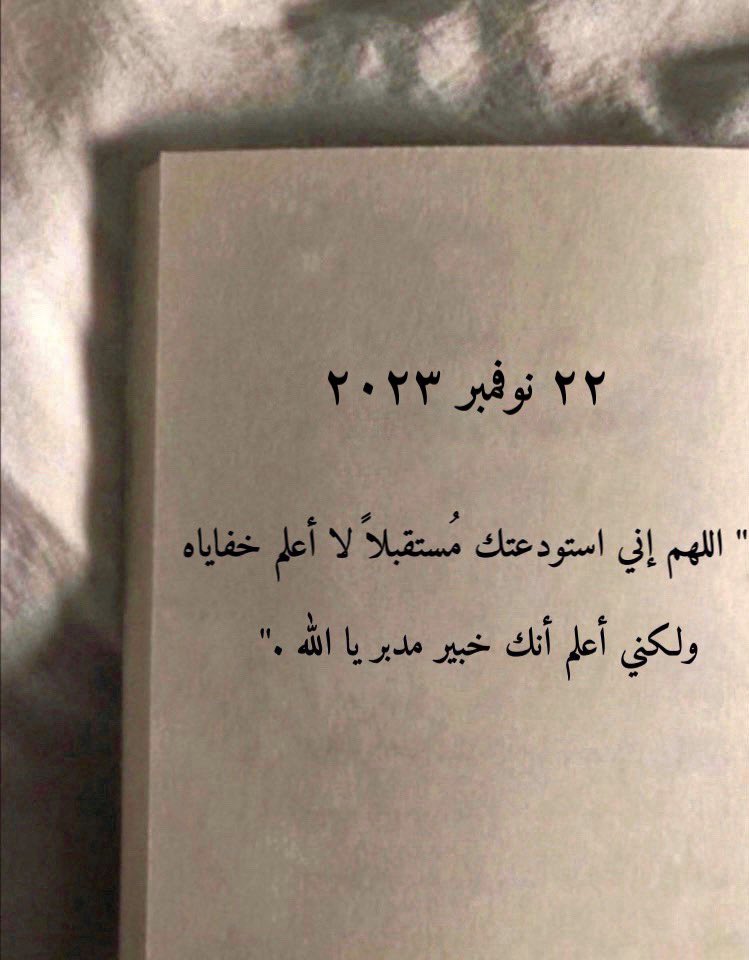 ٢٢ نوفمبر ٢٠٢٣
" اللهم إني استودعتك مُستقبلاً لا أعلم خفاياه
ولكني أعلم أنك خبير مدبر يا الله ."